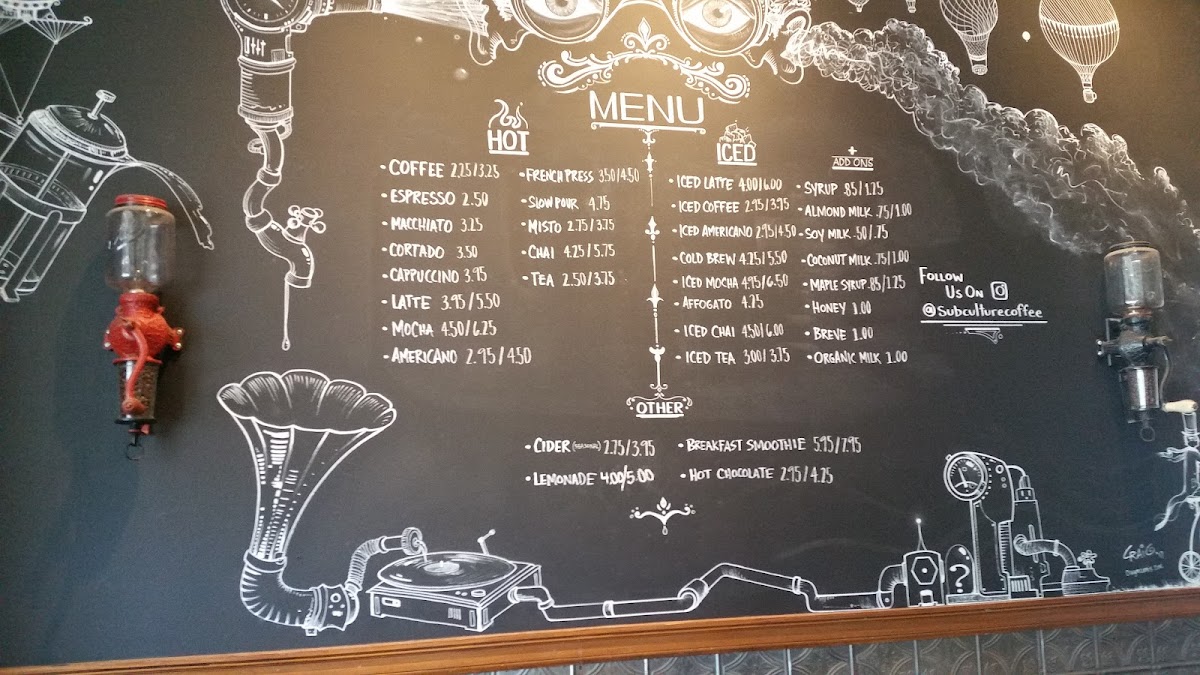 MENU
HOT
• COFFEE 2.25/3.25
• ESPRESSO 2.50
• MACCHIATO 3.25
• CORTADO 3.50
• CAPPUCCINO 3.95
• LATTE 3.95/5.50
• MOCHA 4.50/6.25
• AMERICANO 2.95/4.50
• FRENCH PRESS 3.50/4.50
• SLOW POUR 4.75
• MISTO 2.75/3.75
• CHAI 4.25/5.75
• TEA 2.50/3.75
ICED
• ICED LATTE 4.00/6.00
• ICED COFFEE 2.95/3.95
• ICED AMERICANO 2.95/4.50
• COLD BREW 4.25/5.50
• ICED MOCHA 4.95/6.50
• AFFOGATO 4.25
• ICED CHAI 4.50/6.00
• ICED TEA 3.00/3.75
+
ADD ONS
• SYRUP .85/1.25
• ALMOND MILK .75/1.00
• SOY MILK .50/.75
• COCONUT MILK .75/1.00
• MAPLE SYRUP .85/1.25
• HONEY 1.00
• BREVE 1.00
• ORGANIC MILK 1.00
FOLLOW
US ON
@Subculturecoffee
OTHER
• CIDER (SEASONAL) 2.75/3.95
• LEMONADE 4.00/5.00
• BREAKFAST SMOOTHIE 5.95/7.95
• HOT CHOCOLATE 2.95/4.25
?